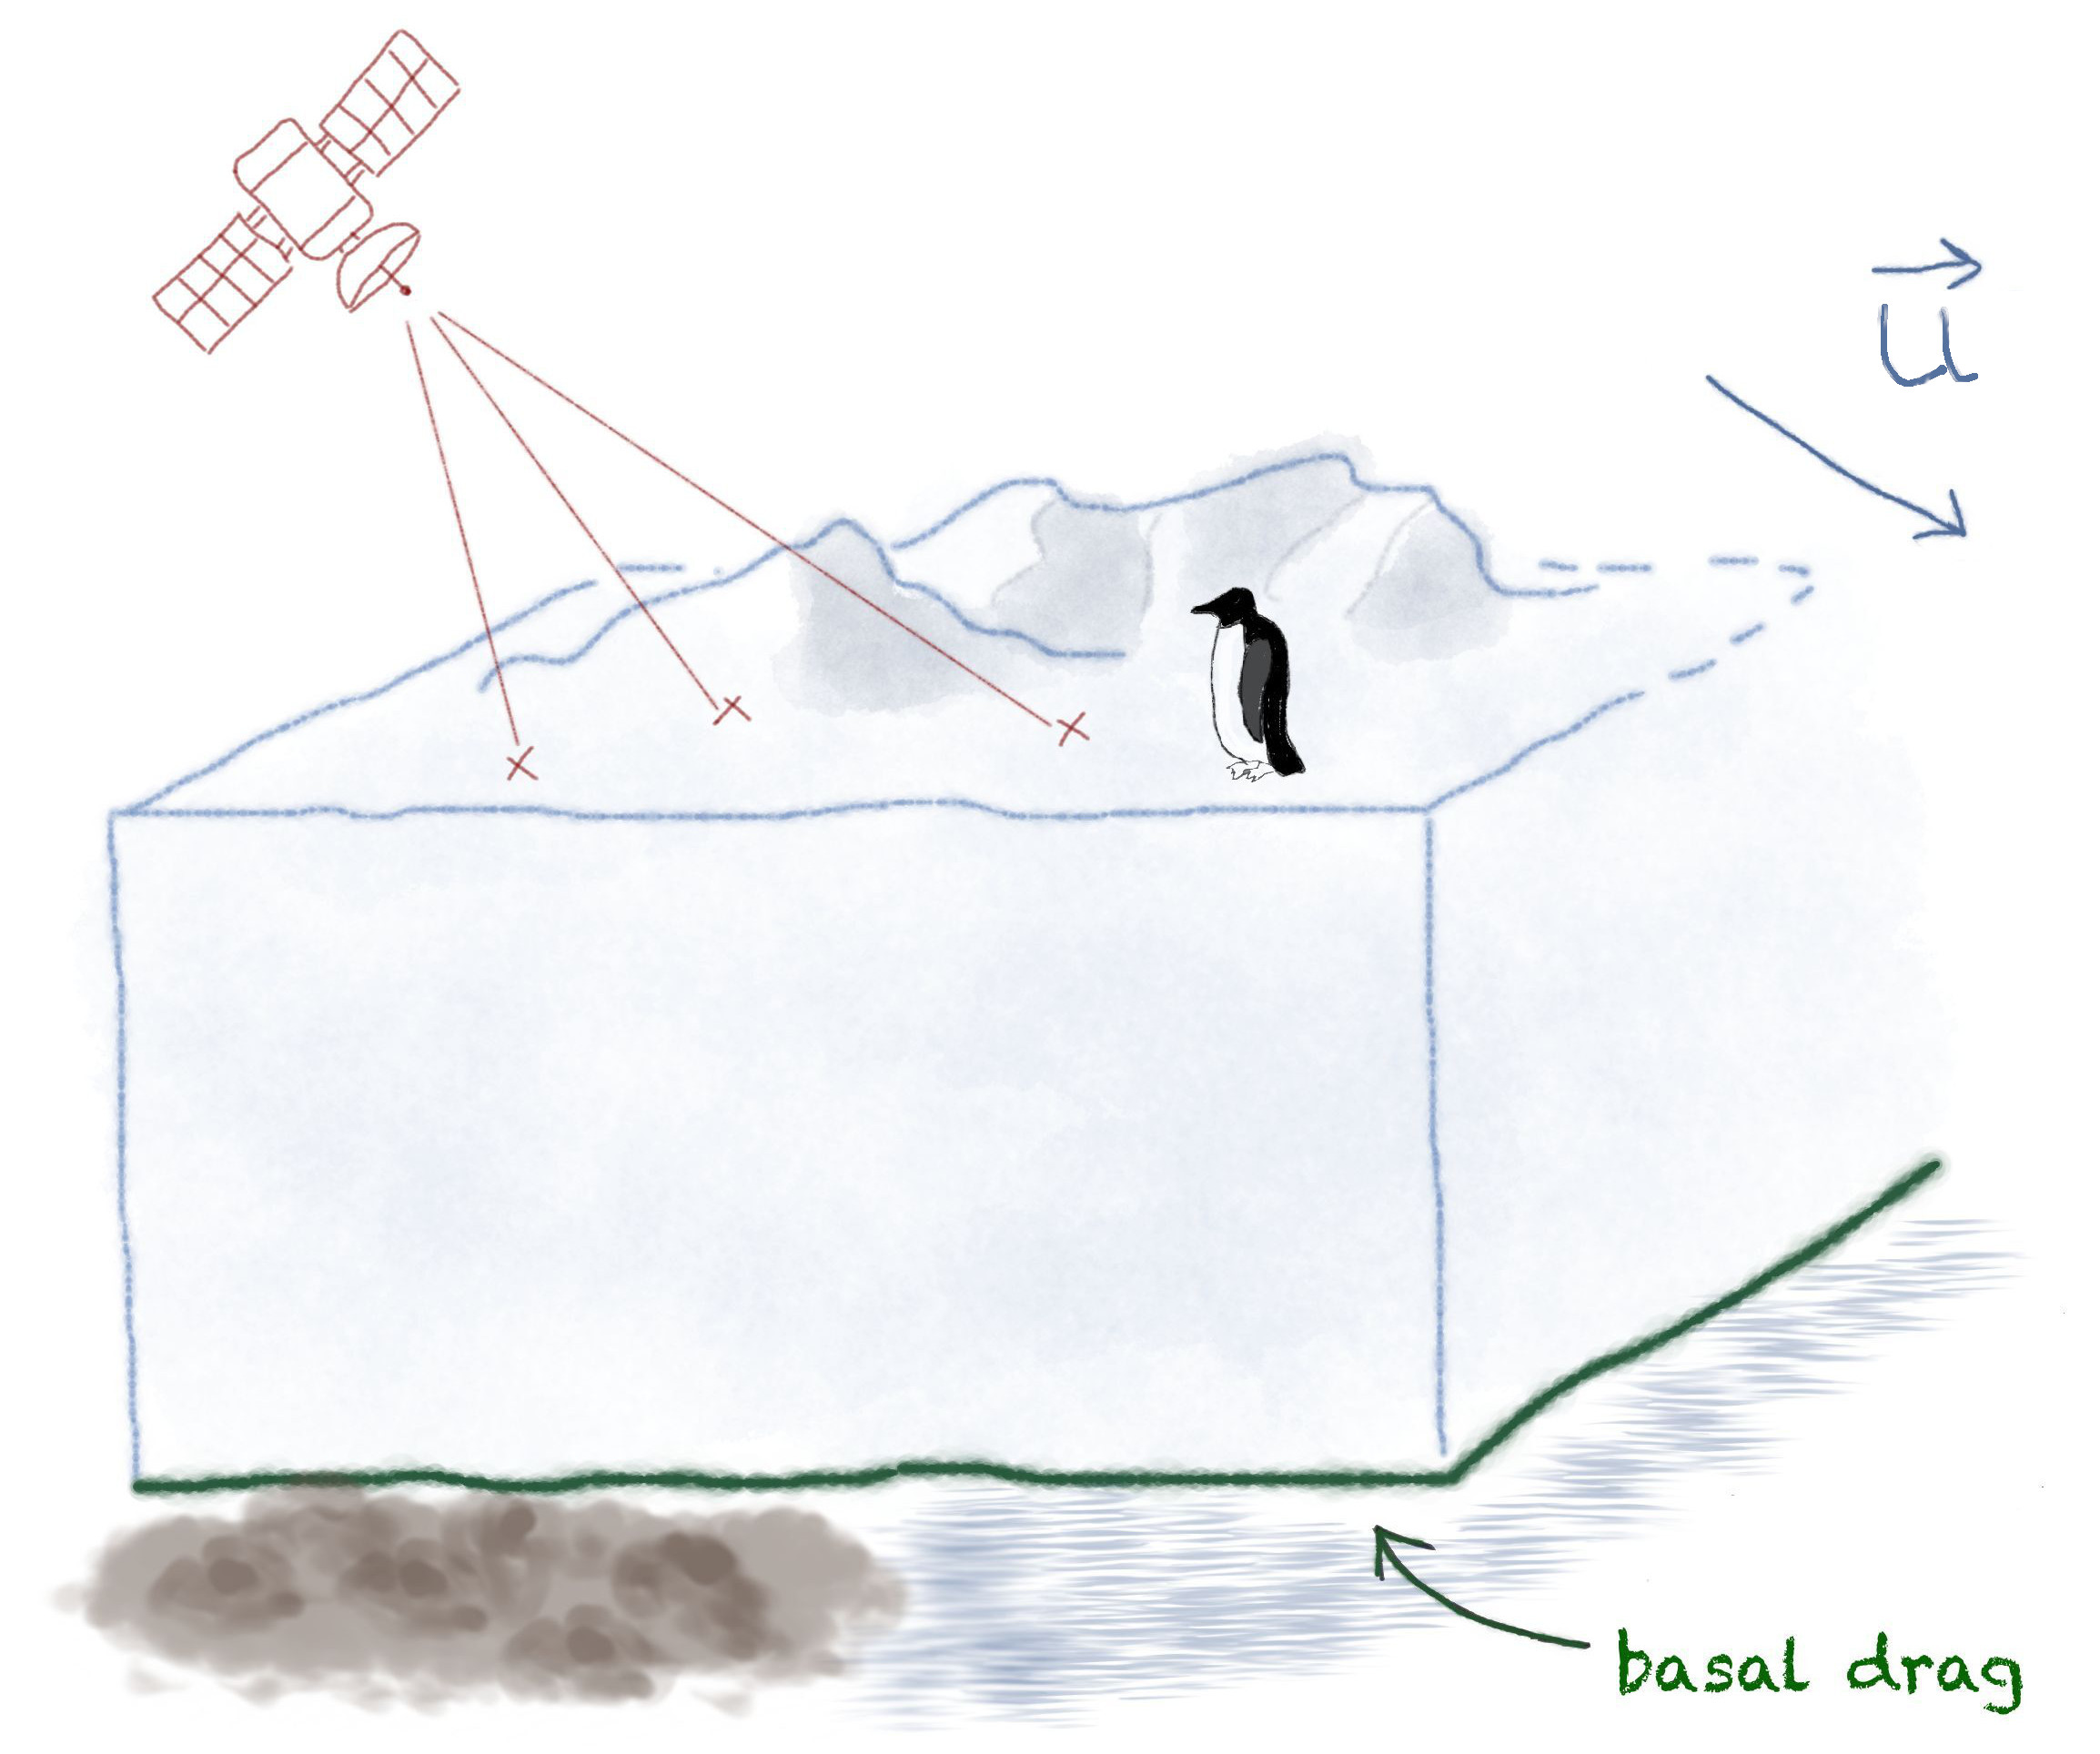 u⃗
basal drag